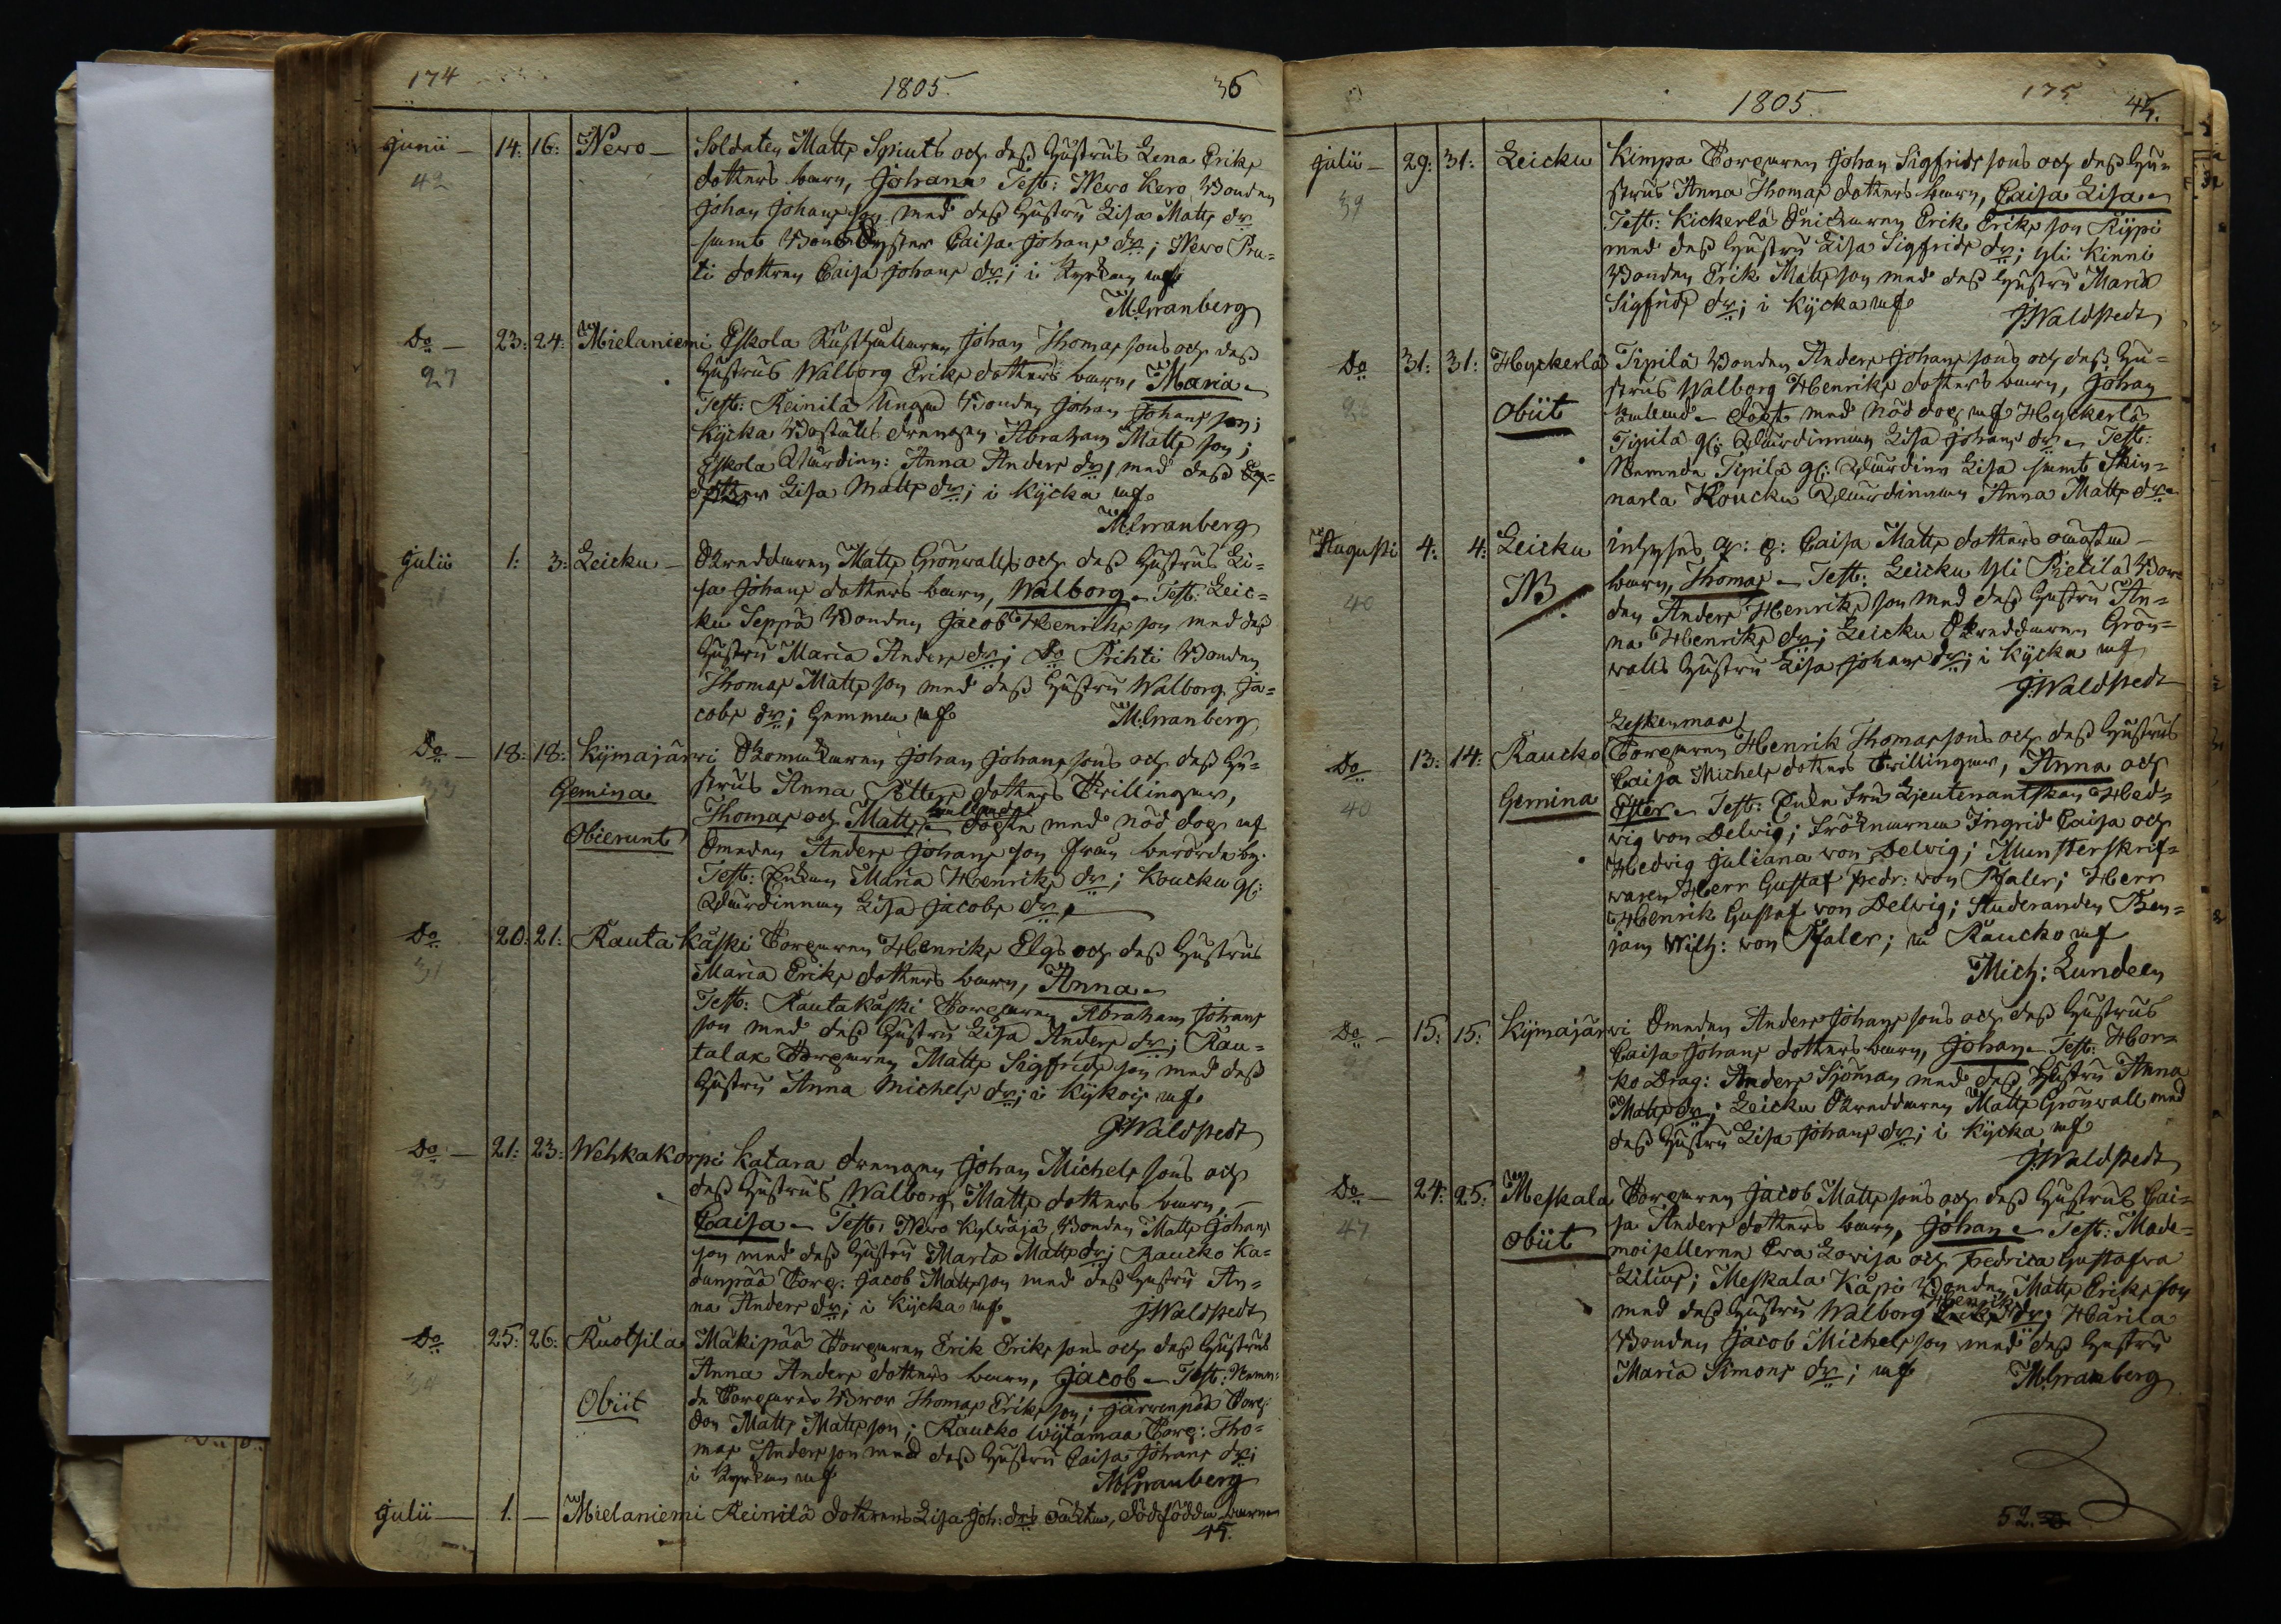 174 1805. 36
Junii — 14: 16: Nero — Soldaten Matts Spruts och dess Hustrus Lena Eriks
42 dotters barn, Johan Test: Nero Kero Bonden
Johan Johansson med dess Hustru Lisa Matts dr
samt Bond Syster Caisa Johans dr; Nero Pru-
ti dottren Caisa Johans dr; i Kyrkan af
M. Granberg
Do — 23: 24: Mielaniemi Eskola Rusthållaren Johan Thomas sons och dess
27 Hustrus Walborg Eriks dotters barn, Maria
Test: Reinilä Unga Bonden Johan Johans son;
Kycka Boställs drengen Abraham Matts son;
Eskola Wärdinn: Anna Anders dr, med dess
dotter Lisa Matts dr; i Kycka af
M. Granberg
Julii 1: 3: Leicku — Skreddaren Matts Grönwalls och dess Hustrus Li-
sa Johans dotters barn, Walborg Test: Leic-
ku Seppä Bonden Jacob Henriks son med dess
Hustru Maria Anders dr; Do Prihti Bonden
Thomas Matts son med dess Hustru Walborg Ja-
cobs dr; hemma af M. Granberg
Do — 18: 18: Kijmajärwi Skomakaren Johan Johans sons och dess Hu-
Gemina strus Anna Petters dotters Twillingar,
kallade
Obierunt Thomas och Matts döpte med nöd dop af
Smeden Anders Johans son från berörde by.
Test: Enkan Maria Henriks dr; Koucku gl:
Wärdinnan Lisa Jacobs dr
Do 20: 21: Rautakåski Torparen Henriks Elgs och dess Hustrus
31 Maria Eriks dotters barn, Anna
Test: Rautakåski Torparen Abraham Johans
son med dess Hustru Lisa Anders dr; Rau-
talax Torparen Matts Sigfrids son med dess
Hustru Anna Michels dr; i Kykois af
J. Waldstedt
Do — 21: 23: Wehkakorpi Katara drengen Johan Michels sons och
dess Hustrus Walborg Matts dotters barn, —
Caisa Test: Nero Kylwäjä Bonden Matts Johans
son med dess Hustru Maria Matts dr; Raucko Ka-
danpää Torp: Jacob Mattsson med dess Hustru An-
na Anders dr; i Kycka af J. Waldstedt
Do 25: 26: Ruotsila Mäkipää Torparen Erik Eriks sons och dess Hustrus
34 Anna Anders dotters barn, Jacob Test: Nemn-
Obiit de Torparens Bror Thomas Eriks son; Järwenpää Torp:
Son Matts Matts son; Raucko Wijtamaa Torp: Tho-
mas Anders son med dess Hustru Caisa Johans dr;
i Kyrkan af M. Granberg
Julii — 1. — Mielaniemi Reinilä dottrens Lisa Joh: drs oächta, dödfödda barnen
45.
1805. 175 45.
Julii — 29: 31: Leicku Kimpa Torparen Johan Sigfrids sons och dess Hu-
39 strus Anna Thomas dotters barn, Caisa Lisa
Test: Kickerlä Snickaren Erik Eriks son Rijpi
med dess Hustru Lisa Sigfrids dr; Yli Kinni
Bonden Erik Matts son med dess Hustru Maria
Sigfrids dr; i Kycka af J. Waldstedt
Do 31: 31: Hyckerlä Tipilä Bonden Anders Johans sons och dess Hu-
26 strus Walborg Henriks dotters barn, Johan
Obiit kallad döpt med nöd dop af Hyckerlä
Tipilä gl: Wärdinnan Lisa Johans dr Test:
Nemnde Tipilä gl: Wärdinn Lisa samt Skin-
narla Koucku Wärdinnan Anna Matts dr
Augusti 4: 4: Leicku inhyses q: p: Caisa Matts dotters oächta —
40 NB barn, Thomas Test: Leicku Yli Pietilä Bon-
den Anders Henriks son med dess Hustru An-
na Henriks dr; Leicku Skreddaren Grön-
walls Hustru Lisa Johans dr; i Kycka af
J. Waldstedt
Leskenmaa
Do 13: 14: Raucko Torparen Henrik Thomas sons och dess Hustrus
Caisa Michels dotters Twillingar, Anna och
40 Gemina Ester Test: Enke Fru Lieutenantskan Hed-
wig von Delwig; Fröknarna Ingrid Caisa och
Hedwig Juliana von Delwig; Munsterskrif-
waren Herr Gustaf Fredr: von Pfaler; Herr
Henrik Gustaf von Delwig; Studeranden Ben-
jam Wilh: von Pfaler; på Raucko af
Mich: Lundeen
Do — 15: 15: Kijmajärwi Smeden Anders Johans sons och dess Hustrus
Caisa Johans dotters barn, Johan Test: Hor-
ko Drag: Anders Sjöman med dess Hustru Anna
Matts dr; Leicku Skreddaren Matts Grönwall med
dess Hustru Lisa Johans dr; i Kycka af
J. Waldstedt
Do — 24: 25: Meskala Torparen Jacob Matts sons och dess Hustrus Cai-
47 sa Anders dotters barn, Johan Test: Made-
Obiit moisellerna Eva Lovisa och Fredrica Gustafva
Lilius; Meskala Käpi Bonden Matts Eriks son
Henriks
med dess Hustru Walborg dr; Härila
Bonden Jacob Michels son med dess Hustru
Maria Simons dr; af M. Granberg
52.